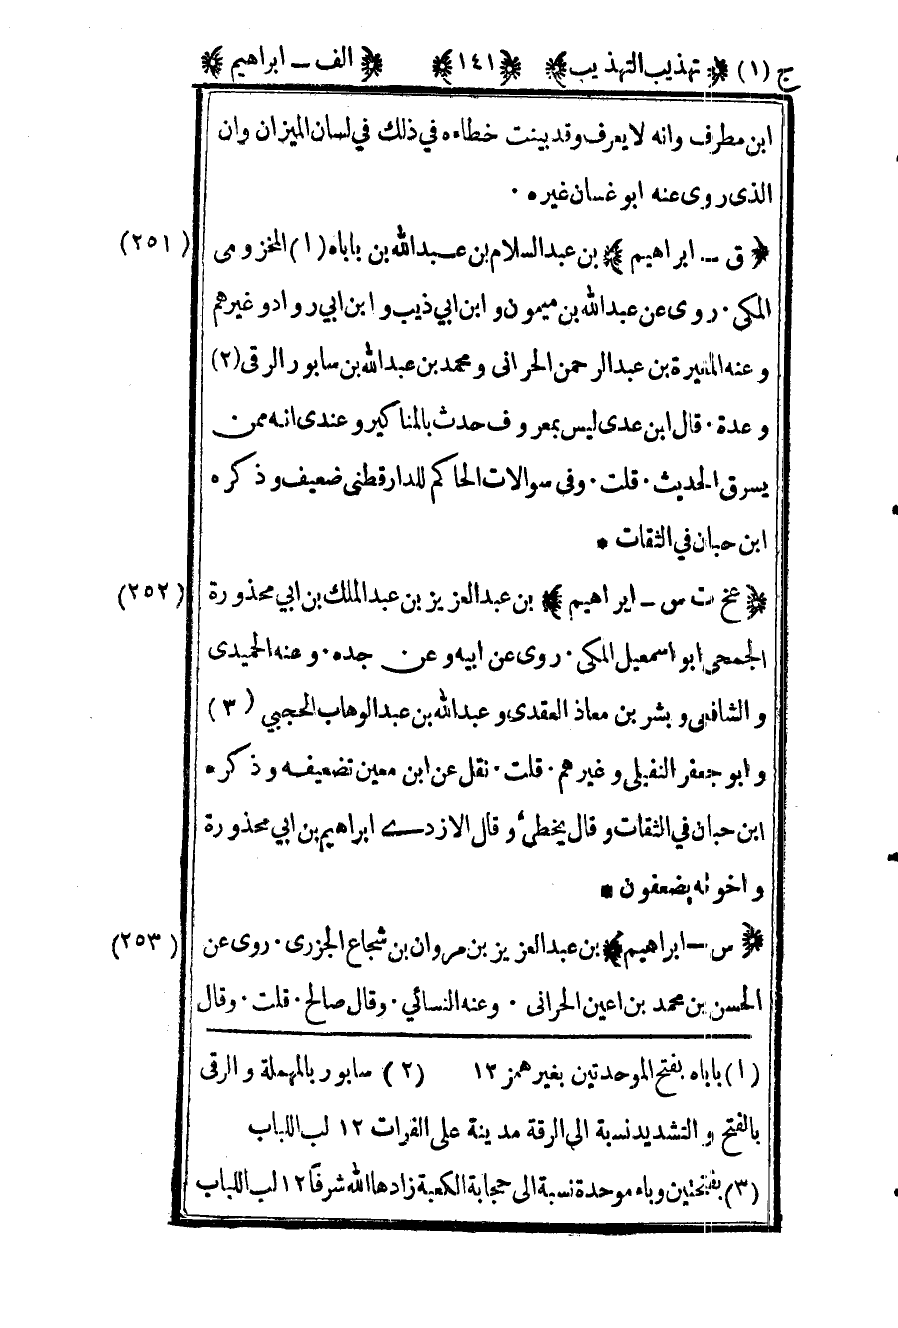 ج (١) ﴿ تهذيب التهذيب ﴾ ﴿ ١٤١ ﴾ ﴿ الف ــ ابراهيم ﴾
ابن مطرف وانه لا يعرف وقد بينت خطاءه في ذلك في لسان الميزان وان
الذى روى عنه ابو غسان غيره ٠
﴿ ق ــ ابراهيم ﴾ بن عبد السلام بن عبد الله بن باباه (١) المخزومى (٢٥١)
المكى ٠ روى عن عبد الله بن ميمون و ابن ابي ذيب و ابن ابي رواد و غيرهم
و عنه المغيرة بن عبد الرحمن الحرانى و محمد بن عبد الله بن سابور الرقى (٢)
و عدة ٠ قال ابن عدى ليس بمعروف حدث بالمناكير و عندى انه ممن
يسرق الحديث ٠ قلت ٠ وفى سوالات الحاكم للدارقطنى ضعيف و ذكره
ابن حبان في الثقات *
﴿ عخ ت س ــ ابراهيم ﴾ بن عبد العزيز بن عبد الملك بن ابي محذورة (٢٥٢)
الجمحى ابو اسمعيل المكى ٠ روى عن ابيه و عن جده ٠ و عنه الحميدى
و الشافعى و بشر بن معاذ العقدى و عبد الله بن عبد الوهاب الحجبي (٣)
و ابو جعفر النفيلى و غيرهم ٠ قلت ٠ نقل عن ابن معين تضعيفه و ذكره
ابن حبان في الثقات و قال يخطئ و قال الازدى ابراهيم بن ابي محذورة
و اخوته يضعفون *
﴿ س ــ ابراهيم ﴾ بن عبد العزيز بن مروان بن شجاع الجزرى ٠ روى عن (٢٥٣)
الحسن بن محمد بن اعين الحرانى ٠ وعنه النسائي ٠ وقال صالح ٠ قلت ٠ وقال
(١) باباه بفتح الموحدتين بغير همز ١٢ (٢) سابور بالمهملة و الرقى
بالفتح و التشديد نسبة الى الرقة مدينة على الفرات ١٢ لب اللباب
(٣) بفتحتين وباء موحدة نسبة الى حجابة الكعبة زادها الله شرفاً ١٢ لب اللباب